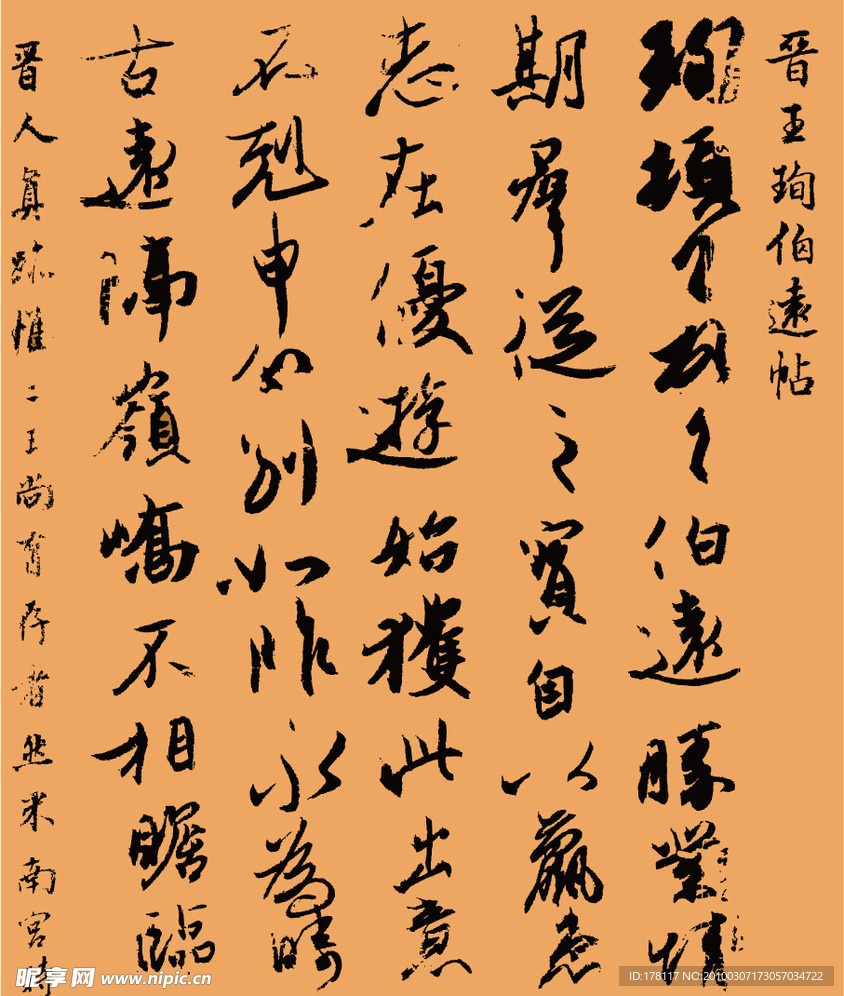 晉王珣伯遠帖
珣頓首頓首伯遠勝業情
期群從之寶自以羸患
志在優遊始獲此出意
不剋申分別如昨永為疇
古遠隔嶺嶠不相瞻臨
晉人真跡惟二王尚有存者然米南宮時
昵享网 www.nipic.cn
ID:178117 NO:20100307173057034722